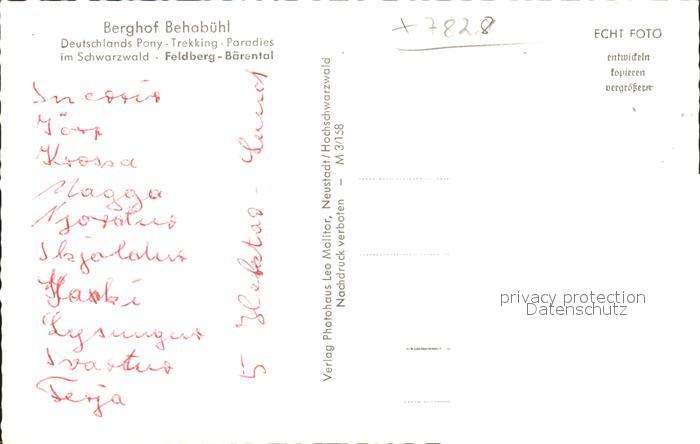 Berghof Behabühl
Deutschlands Pony-Trekking-Paradies
im Schwarzwald · Feldberg-Bärental
+7828
ECHT FOTO
entwickeln
kopieren
vergrößern
Jörp
Krossa
Magga
Skjoldur
Harki
Lysungur
Svartur
Terja
5 Hektar - Land
Verlag Photohaus Leo Molitor, Neustadt/Hochschwarzwald
Nachdruck verboten — M 3/158
privacy protection
Datenschutz